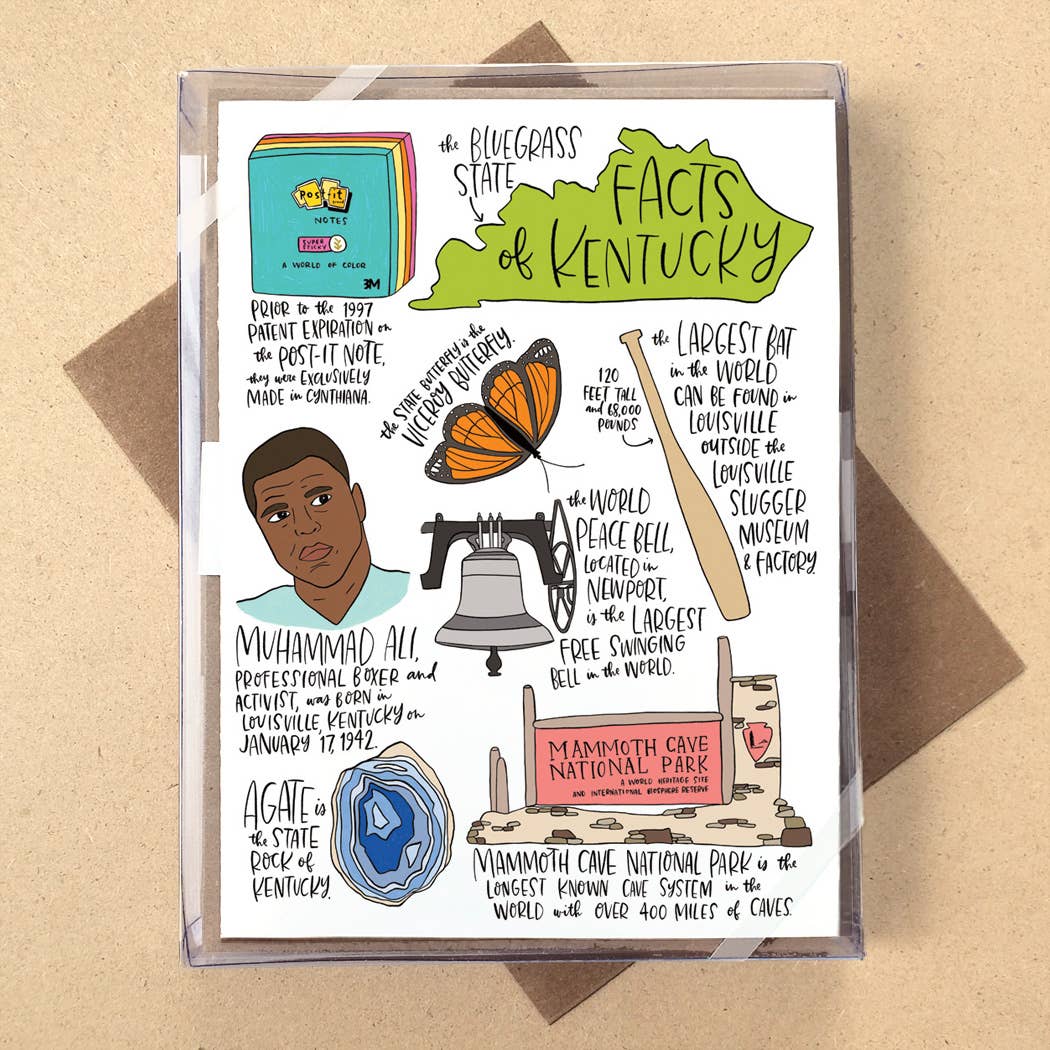 the BLUEGRASS
STATE
FACTS
of KENTUCKY
Post-it
NOTES
SUPER
STICKY
A WORLD OF COLOR
3M
PRIOR to the 1997
PATENT EXPIRATION on
the POST-IT NOTE,
they were EXCLUSIVELY
MADE in CYNTHIANA.
the STATE BUTTERFLY is the
VICEROY BUTTERFLY.
120
FEET TALL
and 68,000
POUNDS
the LARGEST BAT
in the WORLD
CAN BE FOUND in
LOUISVILLE
OUTSIDE the
LOUISVILLE
SLUGGER
MUSEUM
& FACTORY.
the WORLD
PEACE BELL,
LOCATED in
NEWPORT,
is the LARGEST
FREE SWINGING
BELL in the WORLD.
MUHAMMAD ALI,
PROFESSIONAL BOXER and
ACTIVIST, was BORN in
LOUISVILLE, KENTUCKY on
JANUARY 17, 1942.
AGATE is
the STATE
ROCK of
KENTUCKY.
MAMMOTH CAVE
NATIONAL PARK
A WORLD HERITAGE SITE
AND INTERNATIONAL BIOSPHERE RESERVE
MAMMOTH CAVE NATIONAL PARK is the
LONGEST KNOWN CAVE SYSTEM in the
WORLD with OVER 400 MILES of CAVES.